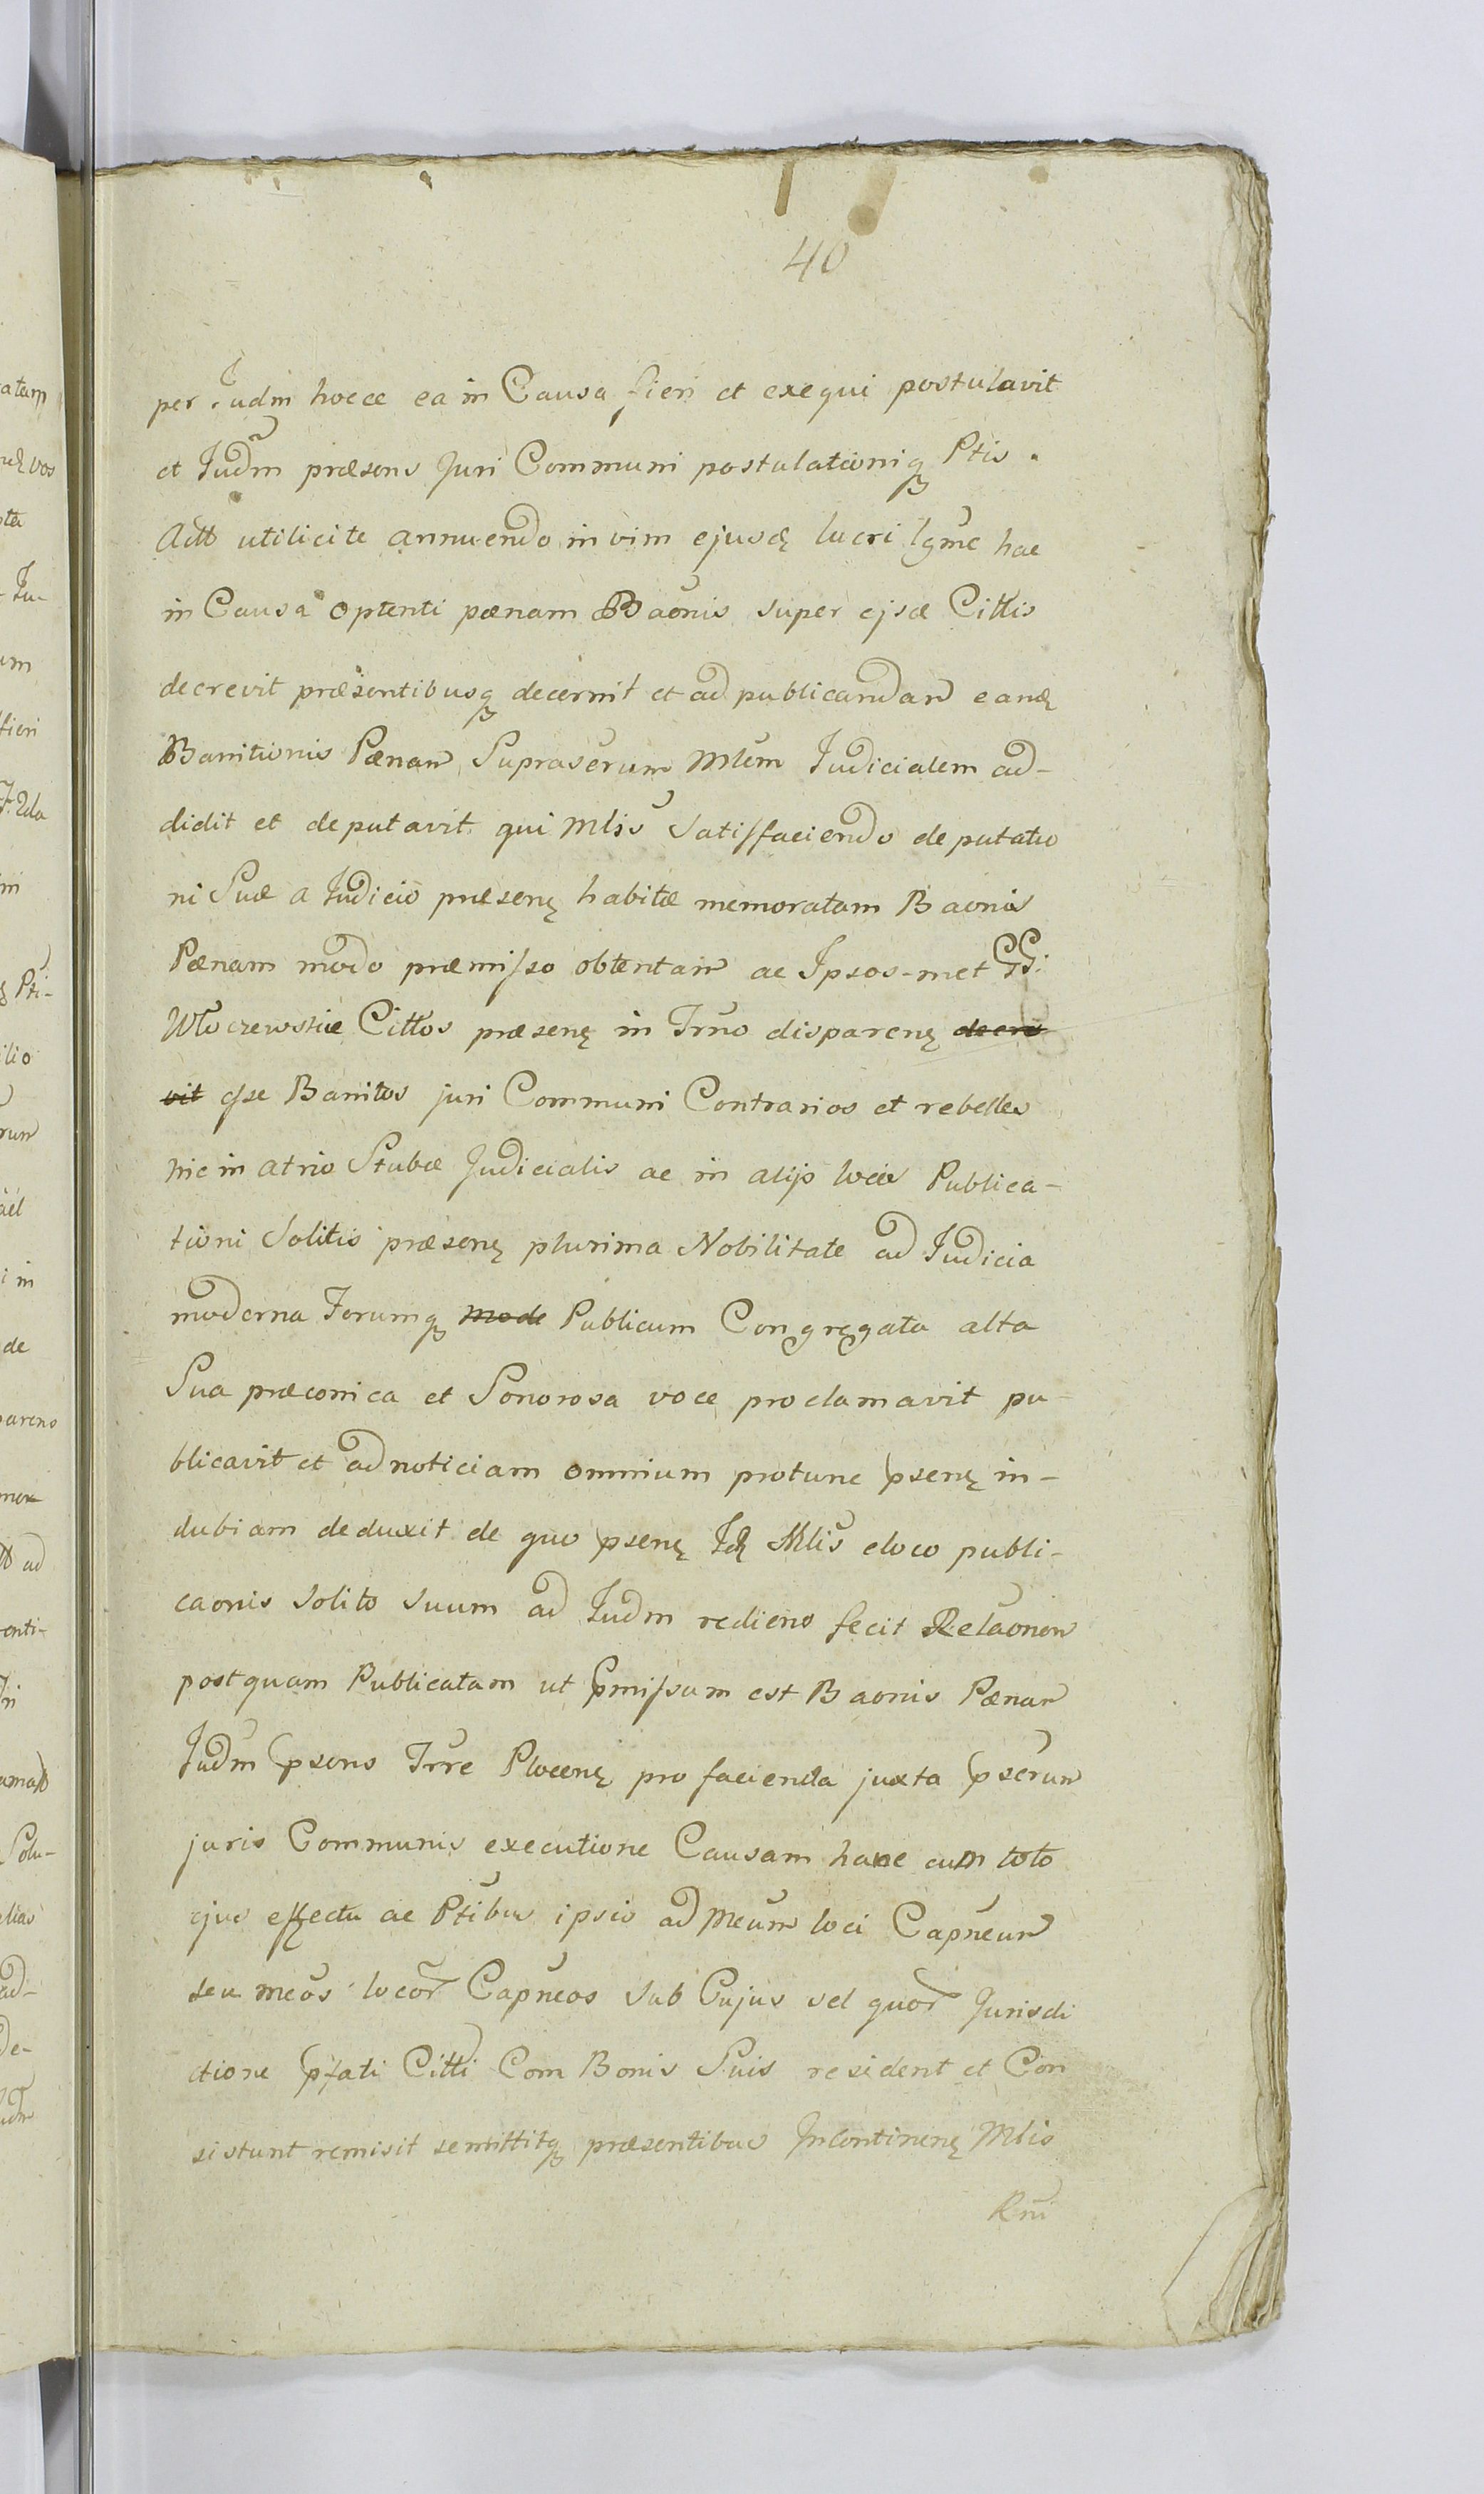 40
per Iudm hocce ea in Causa fieri et exequi postulavit
et Iudm præsens Juri Communi postulationiq Ptis
Actt utilicite annuendo in vim ejusd lucri lgme hac
in Causa optenti pænam Baonis super ejsæ Cittis
decrevit præsentibusq decernit et ad publicandam eand
Banitionis Pænam Supraserum Mlem Judicialem ad-
didit et deputavit qui Mlis satisfaciendo deputatio
ni Suæ a Judicio præsen habitæ memoratam Baonis
Pænam modo præmisso obtentam ac Ipsos-met GG:
Włoczewskie Cittos præsen in Trno disparen decre
vit qse Banitos juri Communi Contrarios et rebelles
hic in atrio Stubæ Judicialis ac in alijs locis Publica-
tioni Solitis præsen plurima Nobilitate ad Judicia
moderna Forumq mode Publicum Congregata alta
Sua præconica et Sonorosa voce proclamavit pu-
blicavit et ad noticiam omnium protunc psen in-
dubiam deduxit de quo psen Id Mlis eloco publi-
caonis solito suum ad Iudm rediens fecit Relaonem
postquam Publicatam ut pmissum est Baonis Pænam
Iudm psens Trre Plocen pro facienda juxta pserum
juris Communis executione Causam hance cum toto
ejus effectu ac Ptibus ipsis ad Meum loci Capneum
seu meos locor Capneos sub Cujus vel quor Jurisdi
ctione pfati Citti Com Bonis Suis resident et Con
sistunt remisit remittitq præsentibus Incontinen Mlis
Rni